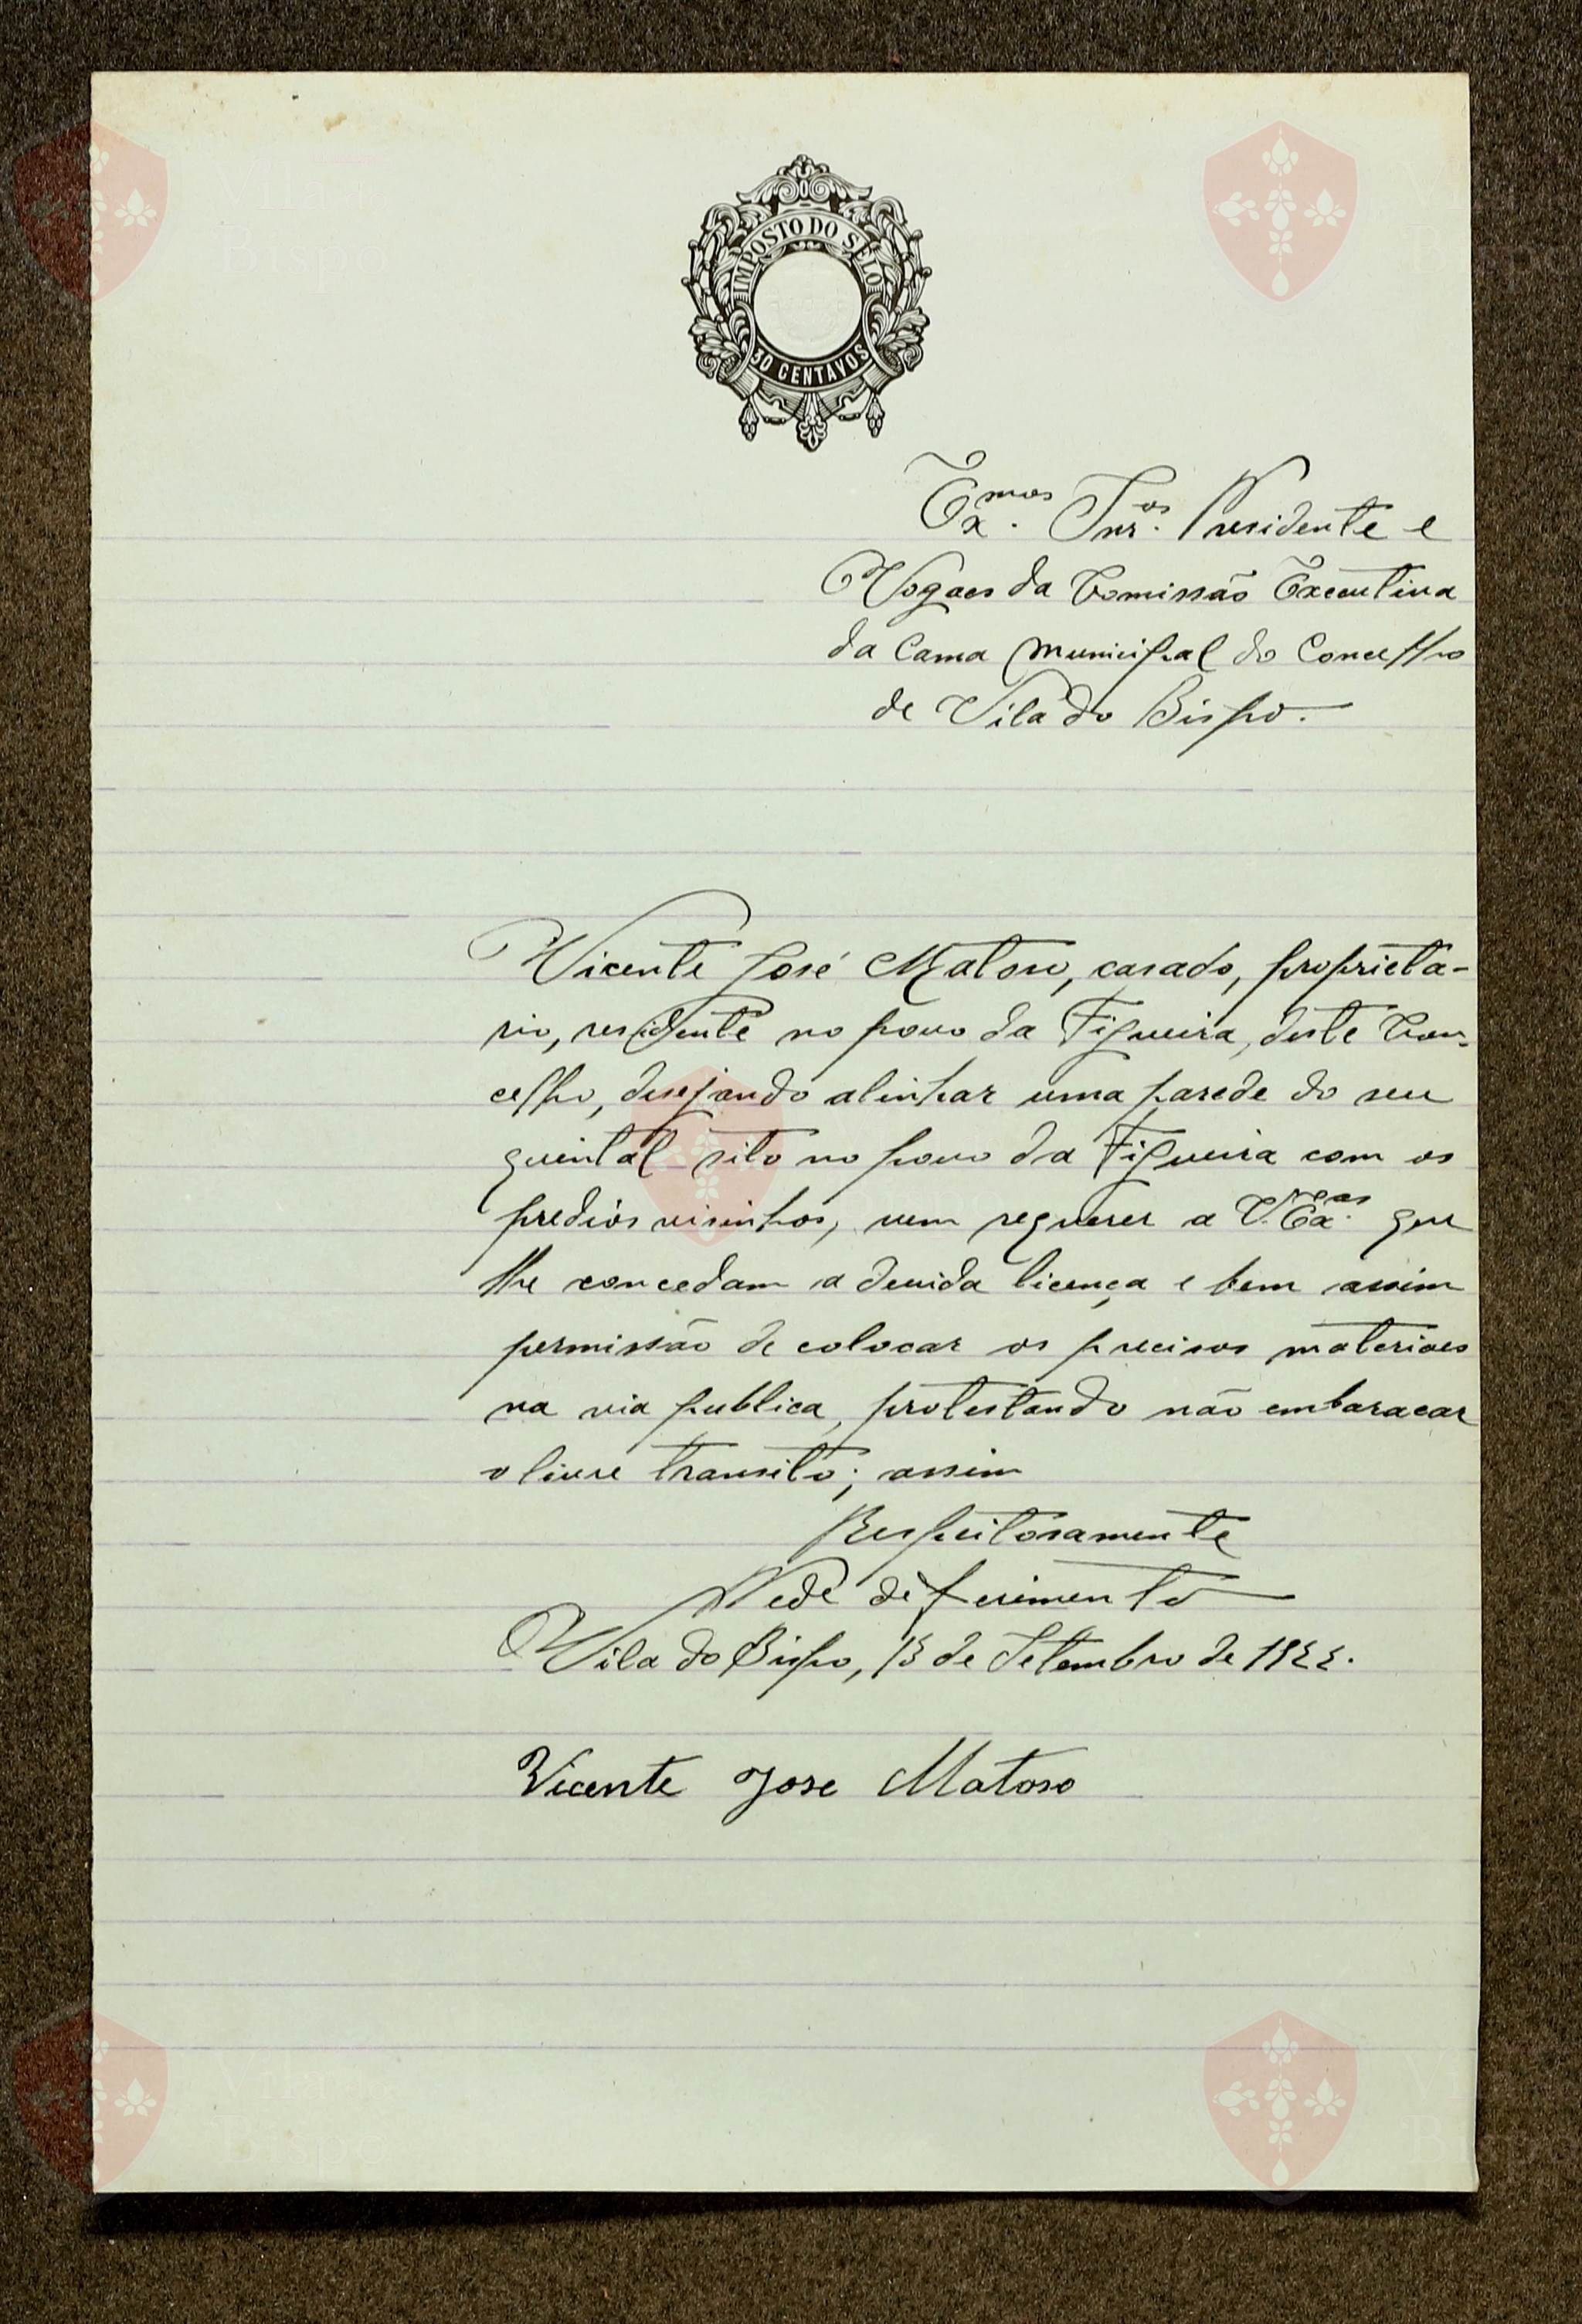 IMPOSTO DO SELO
30 CENTAVOS
Ex.mos Snr.os Presidente e
Vogaes da Comissão Executiva
da Cama Municipal do Concelho
de Vila do Bispo.
Vicente José Matoso, casado, proprieta-
rio, residente no povo da Figueira, deste Con-
celho, desejando alinhar uma parede do seu
quintal sito no povo da Figueira com os
predios visinhos, vem requerer a V. Ex.as que
lhe concedam a devida licença e bem assim
permissão de colocar os precisos materiaes
na via publica, protestando não embaracar
o livre transito; assim
Respeitosamente
Pede deferimento
Vila do Bispo, 13 de Setembro de 1922.
Vicente Jose Matoso
Vila do
Bispo
Vila do
Bispo